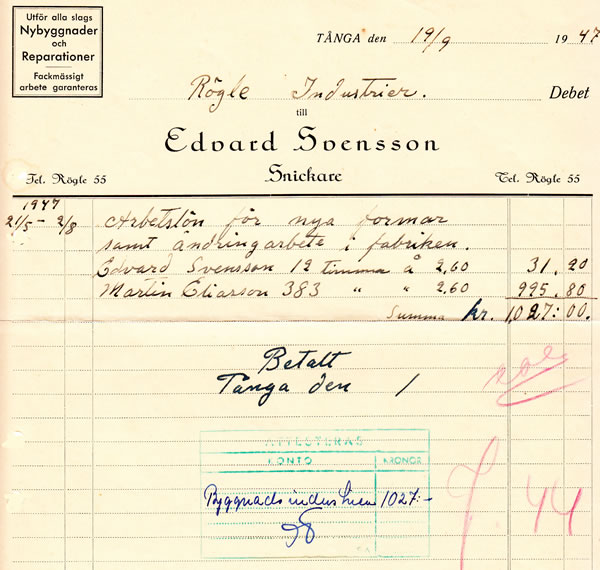 Utför alla slags
Nybyggnader
och
Reparationer
Fackmässigt
arbete garanteras
TÅNGA den 19/9 1947
Rögle Industrier. Debet
till
Edvard Svensson
Snickare
Tel. Rögle 55
Tel. Rögle 55
1947
21/5 - 2/8 Arbetslön för nya formar
samt ändringarbete i fabriken.
Edvard Svensson 12 timma å 2,60 31.20
Martin Eliarson 383 " " 2,60 995.80
Summa kr. 1,027:00.
Betalt
Tånga den /
ATTESTERAS
KONTO KRONOR
1027:-
44